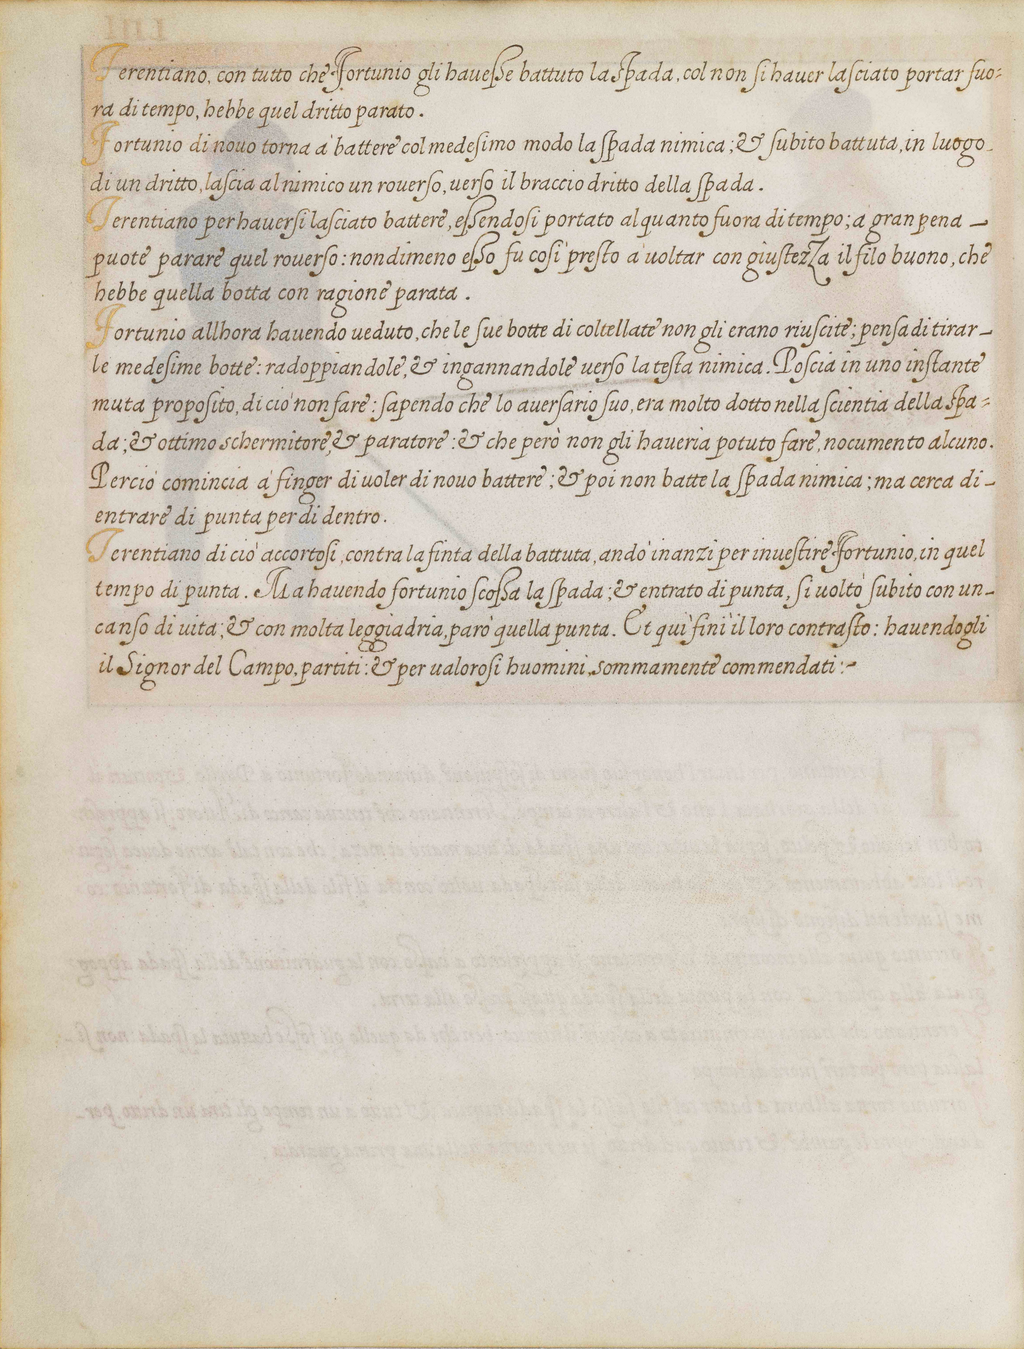 Terentiano, con tutto che Fortunio gli hauesse battuto la spada, col non si hauer lasciato portar fuo=
ra di tempo, hebbe quel dritto parato.
Fortunio di nouo torna à battere col medesimo modo la spada nimica; & subito battuta, in luogo
di un dritto, lascia al nimico un rouerso, uerso il braccio dritto della spada.
Terentiano per hauersi lasciato battere, essendosi portato alquanto fuora di tempo; à gran pena
puote parare quel rouerso: nondimeno esso fu cosi presto à uoltar con giustezza il filo buono, che
hebbe quella botta con ragione parata.
Fortunio allhora hauendo ueduto, che le sue botte di coltellate non gli erano riuscite; pensa di tirar-
le medesime botte: radoppiandole, & ingannandole uerso la testa nimica. Poscia in uno instante
muta proposito, di ciò non fare: sapendo che lo auersario suo, era molto dotto nella scientia della spa=
da; & ottimo schermitore, & paratore: & che però non gli haueria potuto fare, nocumento alcuno.
Perciò comincia à finger di uoler di nouo battere; & poi non batte la spada nimica; ma cerca di-
entrare di punta per di dentro.
Terentiano di ciò accortosi, contra la finta della battuta, andò inanzi per inuestire Fortunio, in quel
tempo di punta. Ma hauendo fortunio scossa la spada; & entrato di punta, si uoltò subito con un-
canso di uita; & con molta leggiadria, parò quella punta. Et qui finì il loro contrasto: hauendogli
il Signor del Campo, partiti: & per ualorosi huomini, sommamente commendati:-